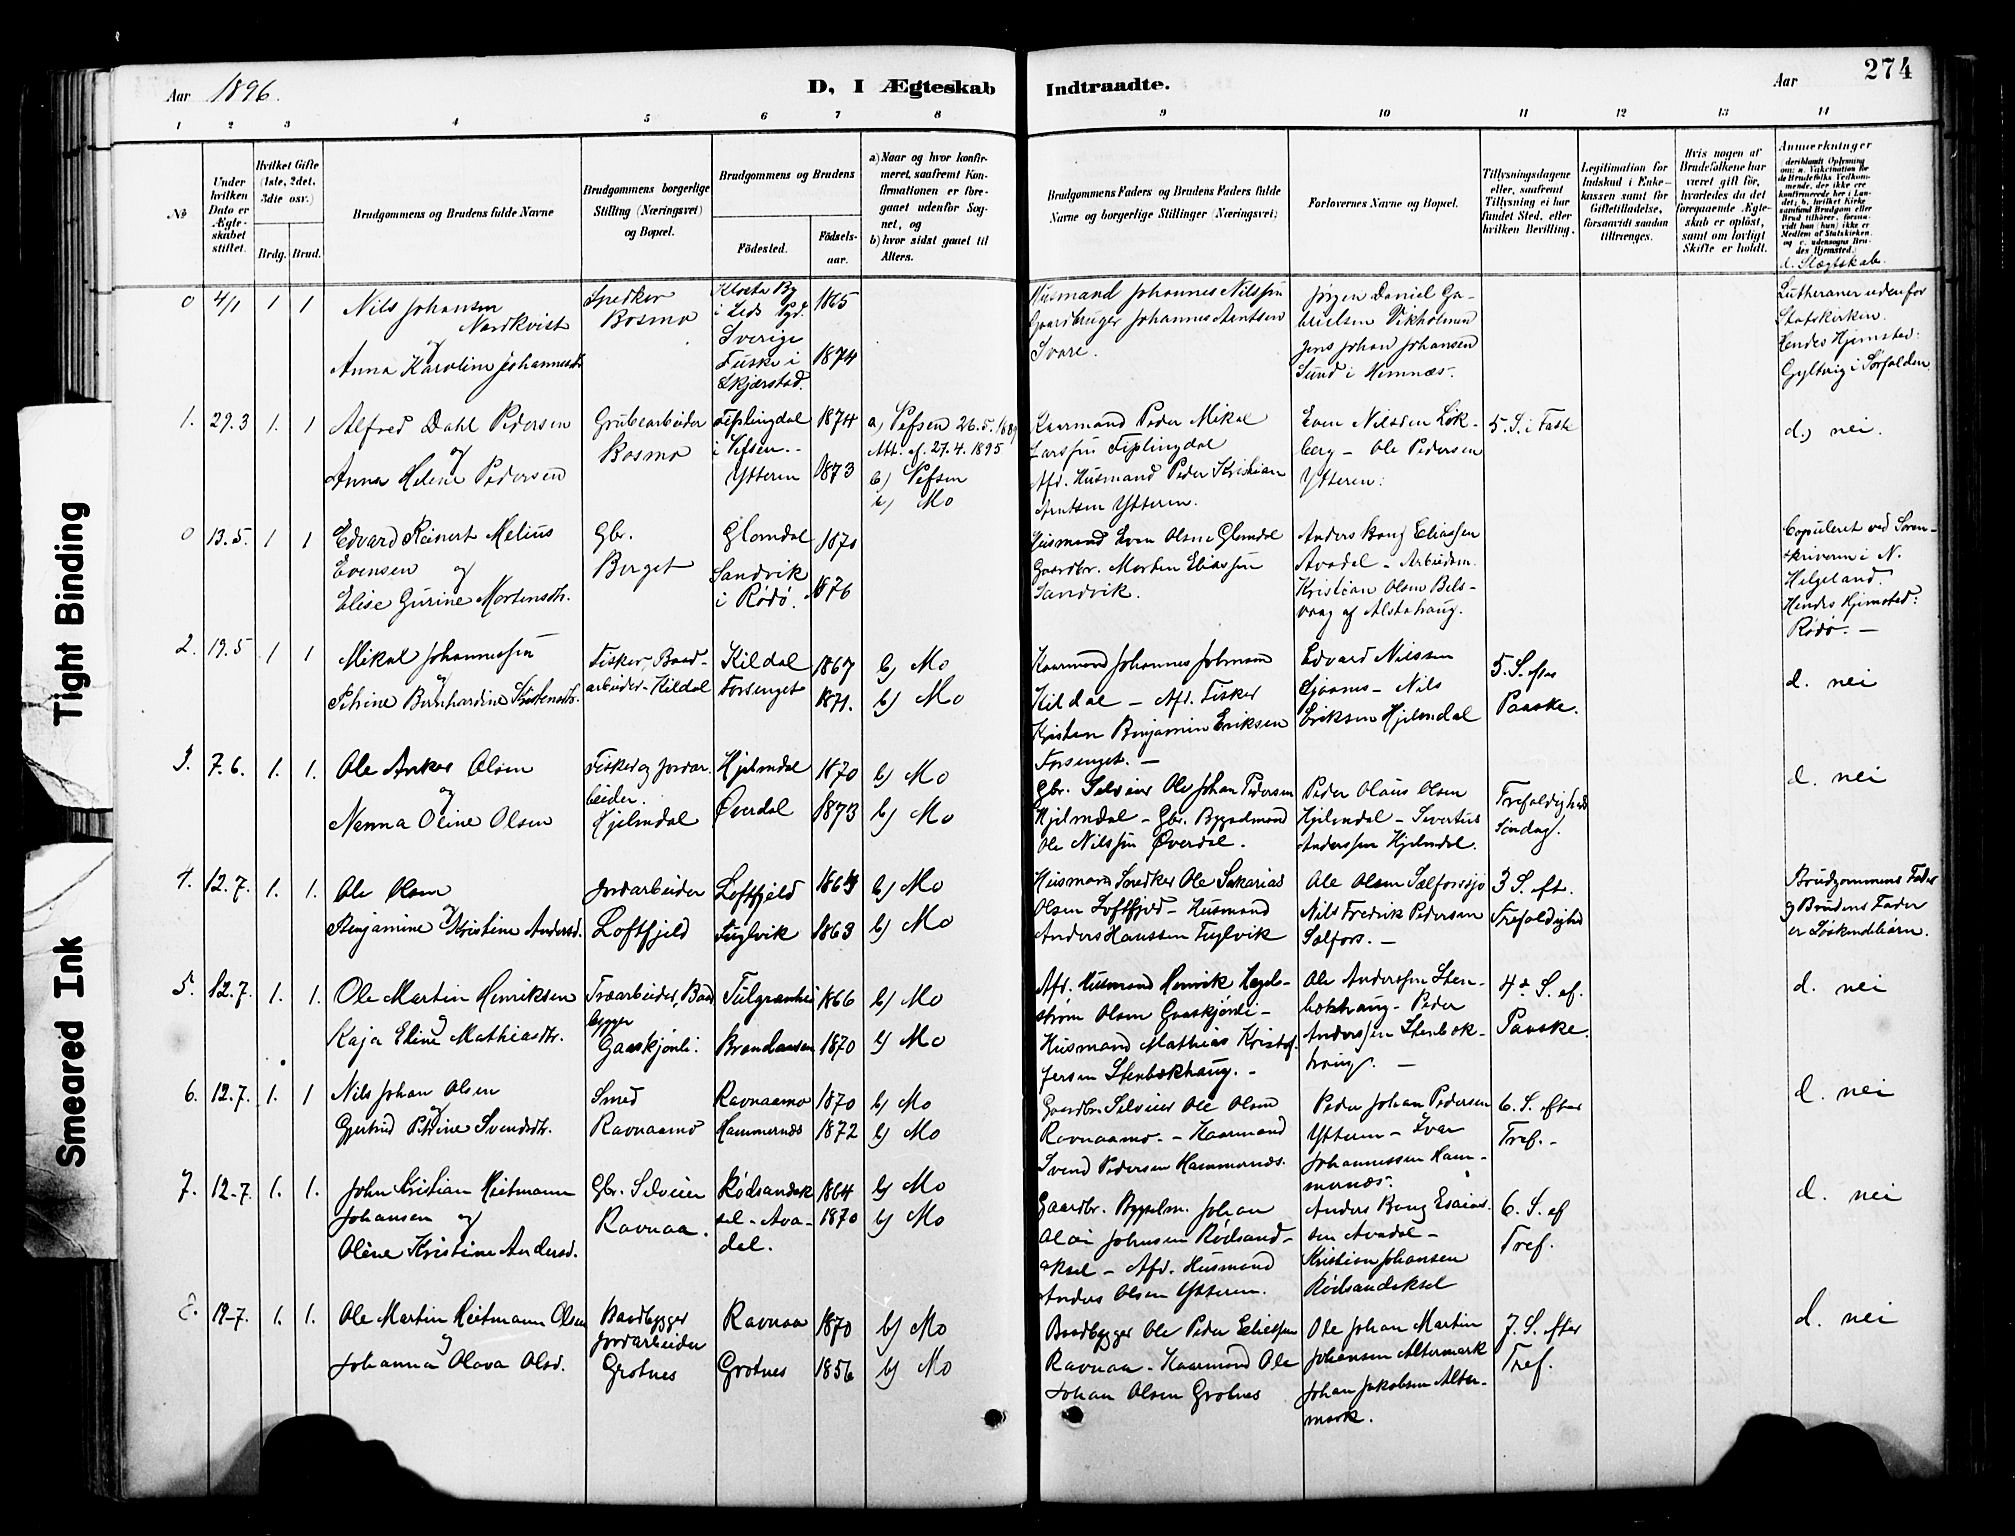 274
Aar 1896.
D, I Ægteskab Indtraadte.
Aar
1 2 3 4 5 6 7 8 9 10 11 12 13 14
No
Under hvilken Dato er Ægteskabet stiftet.
Hvilket Gifte (1ste, 2det, 3die osv.)
Brdg. Brud.
Brudgommens og Brudens fulde Navne
Brudgommens borgerlige Stilling (Næringsvei) og Bopæl.
Brudgommens og Brudens
Födested.
Födselsaar.
a) Naar og hvor konfirmeret, saafremt Konfirmationen er foregaaet udenfor Sognet, og
b) hvor sidst gaaet til Alters.
Brudgommens Faders og Brudens Faders fulde Navne og borgerlige Stillinger (Næringsvei)
Forlovernes Navne og Bopæl.
Tillysningsdagene eller, saafremt Tillysning ei har fundet Sted, efter hvilken Bevilling.
Legitimation for Indskud i Enkekassen samt for Giftetilladelse, forsaavidt saadan tiltrænges.
Hvis nogen af Brudefolkene har været gift för, hvorledes da det foregaaende Ægteskab er oplöst, samt om lovligt Skifte er holdt.
Anmærkninger
(deriblandt Oplysning om: a. Vakcination for de Brudefolks Vedkommende, der ikke ere konfirmerede her i Landet; b. hvilket Kirkesamfund Brudgom eller Brud tilhörer, forsaavidt han (hun) ikke er Medlem af Statskirken, og c. udensogns Brudes Hjemsted.)
d. Slægtskab.
0 4/1 1 1
Nils Johansen
Nordkvist
og
Anna Karoline Johannesdt.
Snedker
Bosmo
Sverige
Fuske i
Skjærstad.
1865
1874
Husmand Johannes Nilssøn
Gaardbruger Johannes Arntsen
Svare.
Jørgen Daniel Ga-
brielsen Vikholmen
Jens Johan Johansen
Sund i Hemnæs.
Lutheraner udenfor
Statskirken.
Hendes Hjemsted:
Gyltvig i Sørfolden
1. 29.3 1. 1
Alfred Dahl Pedersen
og
Anna Helene Pedersen
Grubearbeider
Bosmo
Tiplingdal
i Vefsen.
Ytteren
1874
1873
a) Vefsen 26.5.1889
Att. af. 27.4.1895
b) Vefsen
b) Mo
Kaarmand Peder Mikal
Larssøn Tiplingdal
Afd. Husmand Peder Kristian
Arntsen Ytteren.
Even Nilssen Løk-
berg - Ole Pedersen
Ytteren.
5. S. i Faste
d.) nei.
0 13.5. 1 1
Edvard Reinert Melius
Evensen og
Elise Gurine Mortensdtr.
Gbr.
Berget
Glomdal
Sandvik
i Rödö.
1870
1876
Husmand Even Olsen Glomdal
Gaardbr. Morten Eliassøn
Sandvik.
Anders Bang Eliassen
Avadal - Arbeidsm.
Kristian Olsen Bels-
vaag af Alstahaug.
Copuleret ved Soren-
skriveren i N.
Helgeland.
Hendes Hjemsted:
Rödö. -
2. 19.5 1 1
Mikal Johannessøn
og
Petrine Bernhardine Kristensdtr.
Fisker, Baad-
arbeider - Kildal
Kildal
Forsenget
1867
1871.
b) Mo
b) Mo
Kaarmand Johannes Johnsen
Kildal - Afd. Fisker
Kristen Benjamin Eriksen
Forsenget. -
Edvard Nilssen
Sjaanes - Nils
Eriksen Hjelmdal
5. S. efter
Paaske.
d. nei
3. 7.6. 1. 1.
Ole Anker Olsen
og
Nanna Oline Olsen
Fisker og Jordar-
beider.
Hjelmdal
Hjelmdal
Øverdal
1870
1873
b) Mo
b) Mo
Gbr. Selveier Ole Johan Pedersen
Hjelmdal - Gbr. Bygselmand
Ole Nilssøn Øverdal.
Peder Olaus Olsen
Hjelmdal - Sivertus
Anderssen Hjelmdal.
Trefoldigheds
Søndag.
d. nei
4. 12.7. 1. 1.
Ole Olsen
og
Benjamine Kristine Andersd.
Jordarbeider
Loftfjeld
Loftfjeld
Fuglvik
1863
b) Mo
b) Mo
Husmand Snedker Ole Sakarias
Olsen Loftfjeld - Husmand
Anders Hanssen Fuglvik
Ole Olsen Selforssjø
Nils Fredrik Pedersen
Selfors. -
3 S. eft.
Trefoldighed
Brudgommens Fader
og Brudens Fader
er Søskendebørn.
5. 12.7. 1. 1.
Ole Martin Henriksen
og
Kaja Eline Mathiasdtr.
Træarbeider, Baad-
bygger
Gaaskjønli.
Brandaasen
1866
1870
b) Mo
b) Mo
Afd. Husmand Henrik Hegel-
strøm Olsen Gaaskjønli -
Husmand Mathias Kristof-
fersen Stenbækhaug. -
Ole Anderssen Sten-
bækhaug - Peder
Anderssen Stenbæk-
haug. -
4de S. ef.
Paaske.
d. nei
6. 12.7. 1. 1
Nils Johan Olsen
og
Gjertrud Petrine Svendsdtr.
Smed
Ravnaamo
Ravnaamo
Hammernæs
1870
1872
b) Mo
b) Mo
Gaardbr. Selveier Ole Olsen
Ravnaamo. - Kaarmand
Svend Pedersen Hammernæs.
Peder Johan Pedersen
Ytteren - Ivar
Johannessen Ham-
mernæs.
6. S. efter
Tref. -
d. nei
7. 12-7. 1. 1.
John Kristian Heitmann
Johansen og
Oline Kristine Andersd.
Gbr. Selveier
Ravnaa.
Rödsandak-
sel - Ava-
dal.
1864
1870
b) Mo
b) Mo
Gaardbr. Bygselm. Johan
Olai Johnsen Rødsand-
aksel - Afd. Husmand
Anders Olsen Ytteren.
Anders Bang Esaias-
sen Avadal -
Kristian Johansen
Rødsandaksel
6. S. ef
Tref.
d. nei
8. 19-7. 1. 1.
Ole Martin Heitmann Olsen
og
Johanna Olava Olsd.
Baadbygger
Jordarbeider
Grotnes
Ravnaa
Grotnes
1870
1856
b) Mo
b) Mo
Baadbygger Ole Peder Eliessen
Ravnaa - Kaarmand Ole
Johan Olsen Grotnes
Ole Johan Martin
Johansen Altermark
Johan Jakobsen Alter-
mark.
7. S. efter
Tref.
d. nei
Tight Binding
Smeared Ink